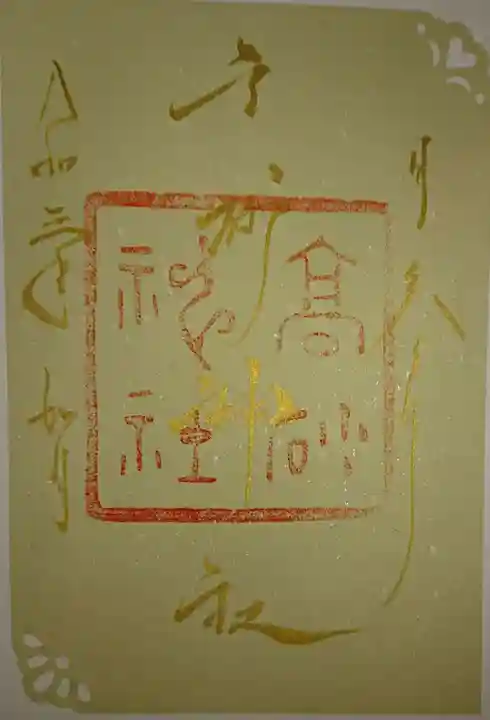 高砂神社
高砂
神社
令和三年 如月